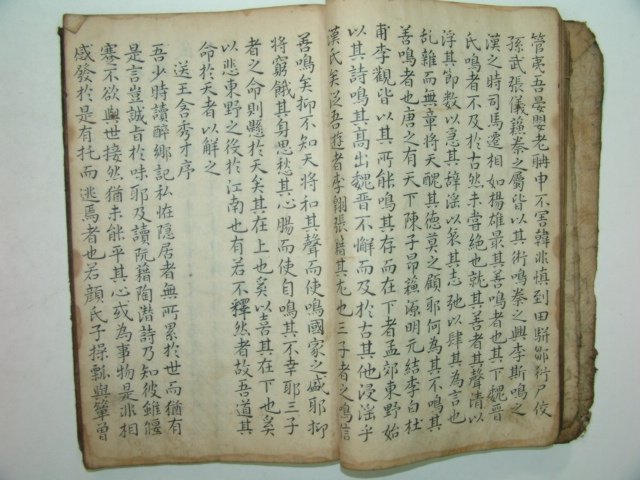 管夷吾晏嬰老聃申不害韓非慎到田騈鄒衍尸佼
孫武張儀蘇秦之屬皆以其術鳴秦之興李斯鳴之
漢之時司馬遷相如楊雄最其善鳴者也其下魏晉
氏鳴者不及於古然未嘗絶也就其善者其聲淸以
浮其節數以急其辭淫以哀其志弛以肆其為言也
乱雜而無章將天醜其德莫之顧耶何為其不鳴其
善鳴者也唐之有天下陳子昻蘇源明元結李白杜
甫李觀皆以其所能鳴其存而在下者孟郊東野始
以其詩鳴其高出魏晉不懈而及於古其他浸淫乎
漢氏矣従吾遊者李翺張籍其尤也三子者之鳴信
善鳴矣抑不知天將和其聲而使鳴國家之盛耶抑
將窮餓其身思愁其心膓而使自鳴其不幸耶三子
者之命則懸於天矣其在上也奚以喜其在下也奚
以悲東野之役於江南也有若不釋然者故吾道其
命於天者以解之
送王含秀才序
吾少時讀醉鄉記私恠隱居者無所累於世而猶有
是言豈誠旨於味耶及讀阮籍陶潛詩乃知彼雖偃
蹇不欲與世接然猶未能平其心或為事物是非相
感發於是有托而逃焉者也若顔氏子操瓢與簞曾